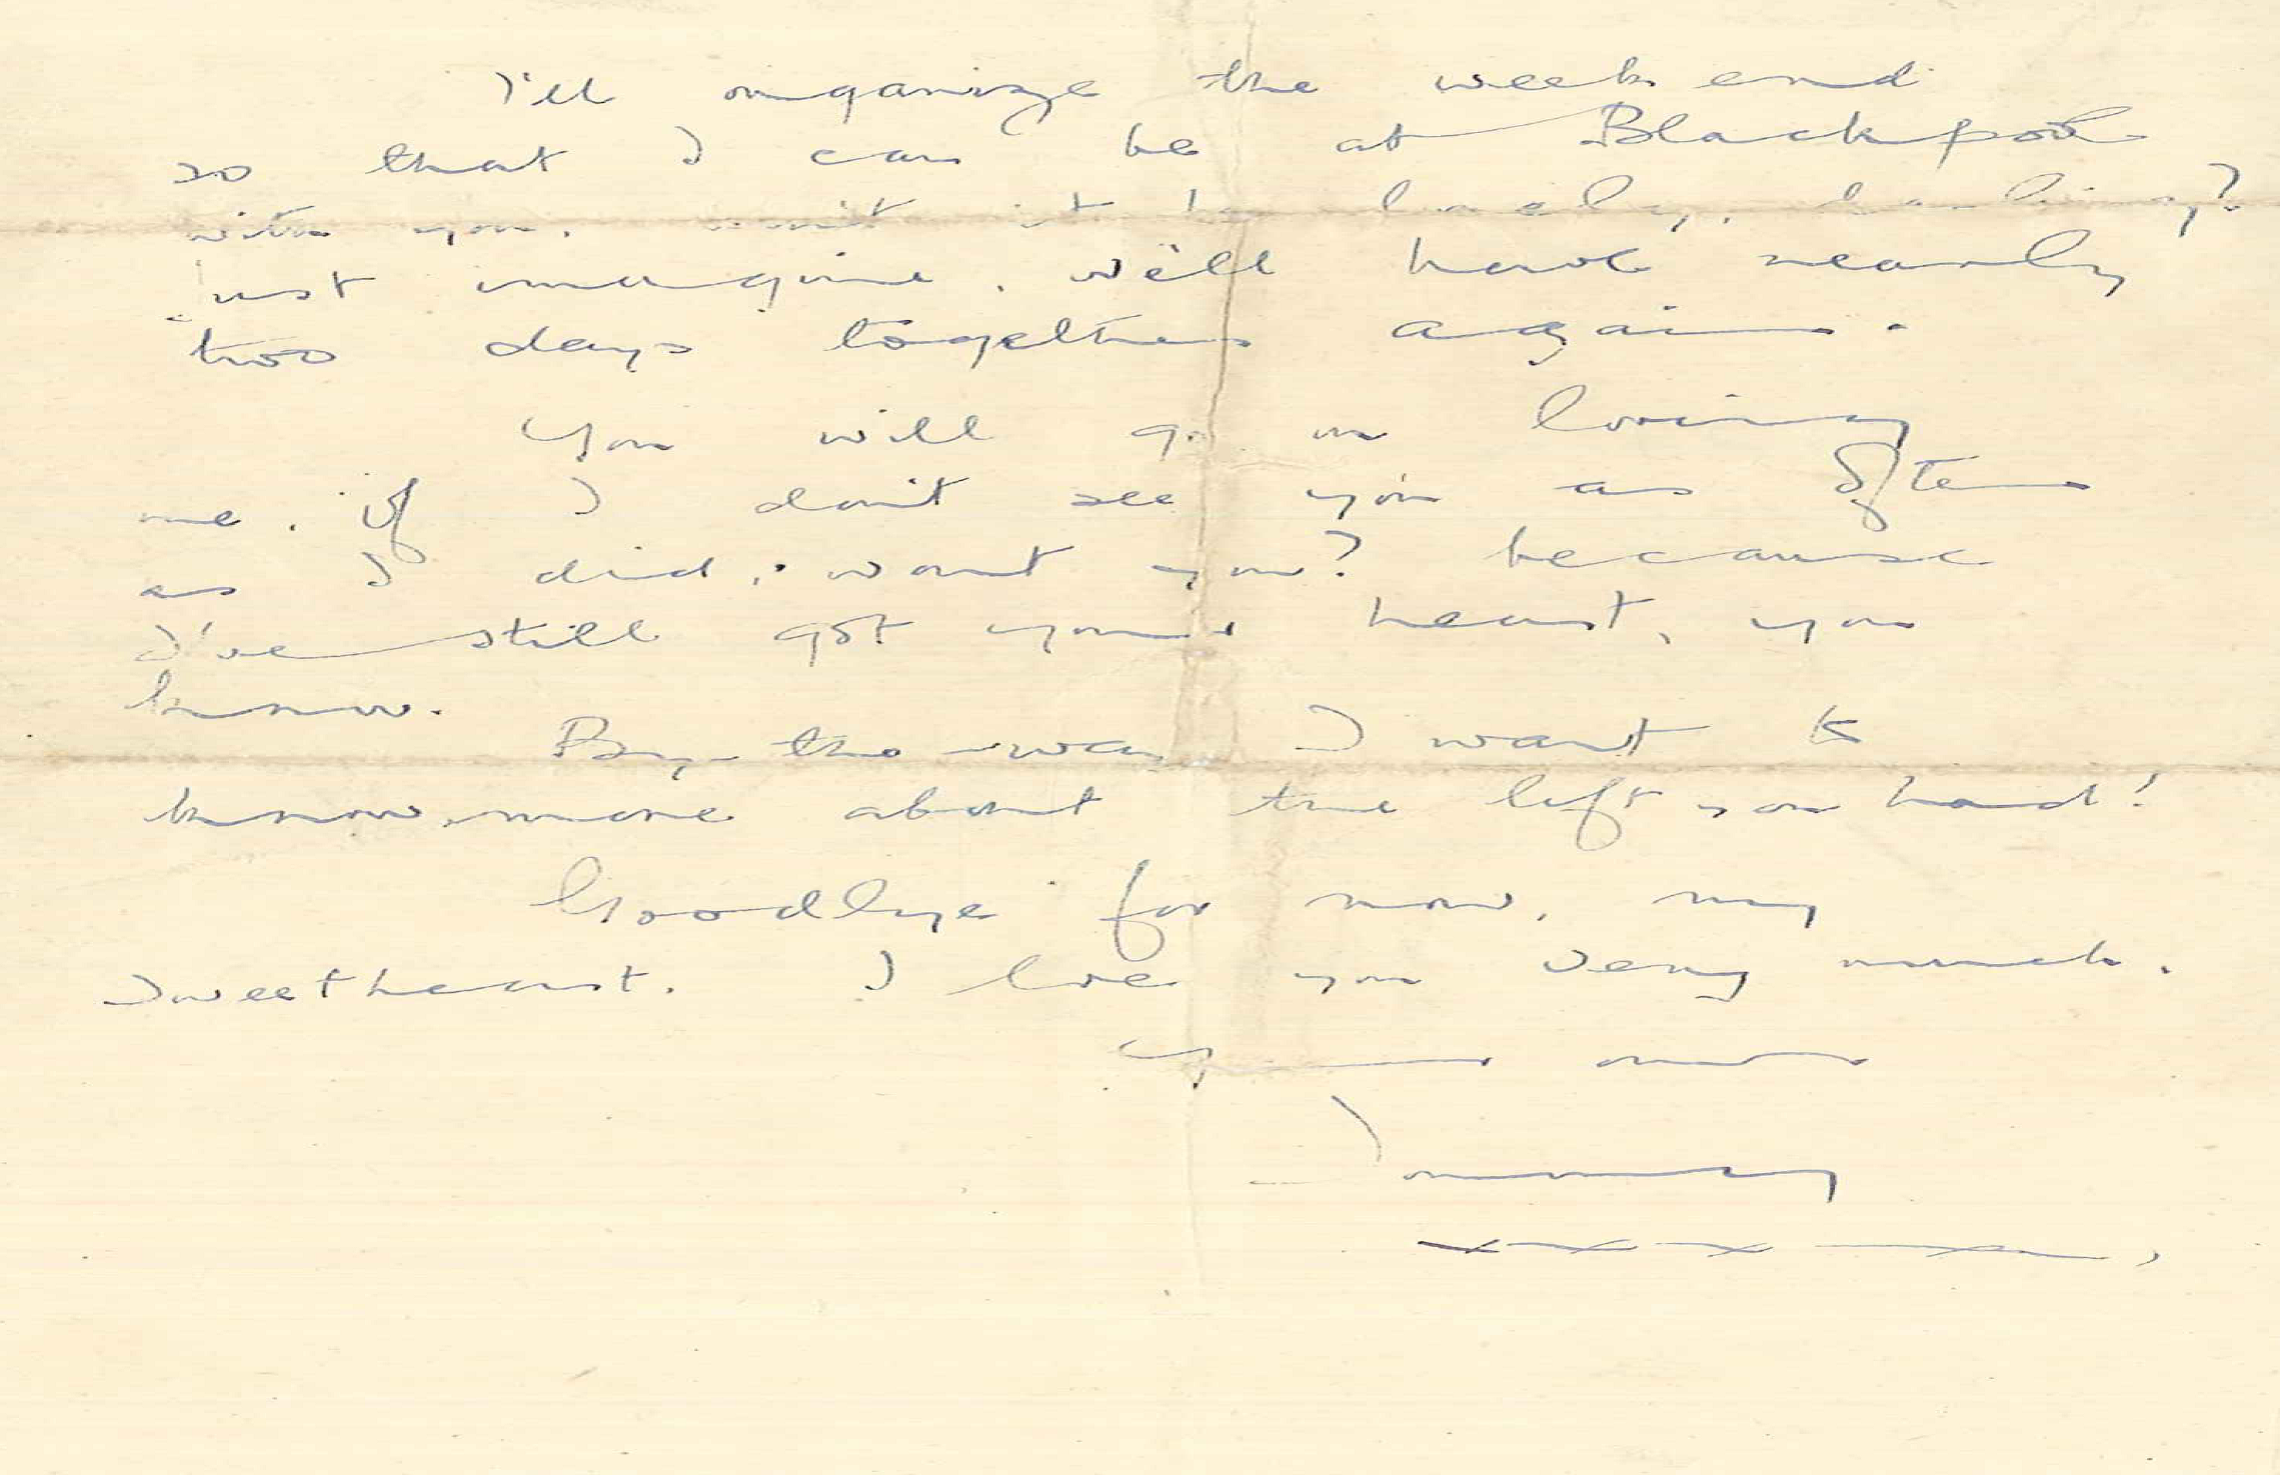 I'll organize the week end
so that I can be at Blackpool
with you. won't it be lovely, darling?
Just imagine, we'll have nearly
two days together again.
You will go on loving
me, if I don't see you as often
as I did, won't you? because
I've still got your heart, you
know.
By-the-way I want to
know more about the lift you had!
Goodbye for now, my
Sweetheart. I love you very much.
Yours ever
Tommy
x x x x